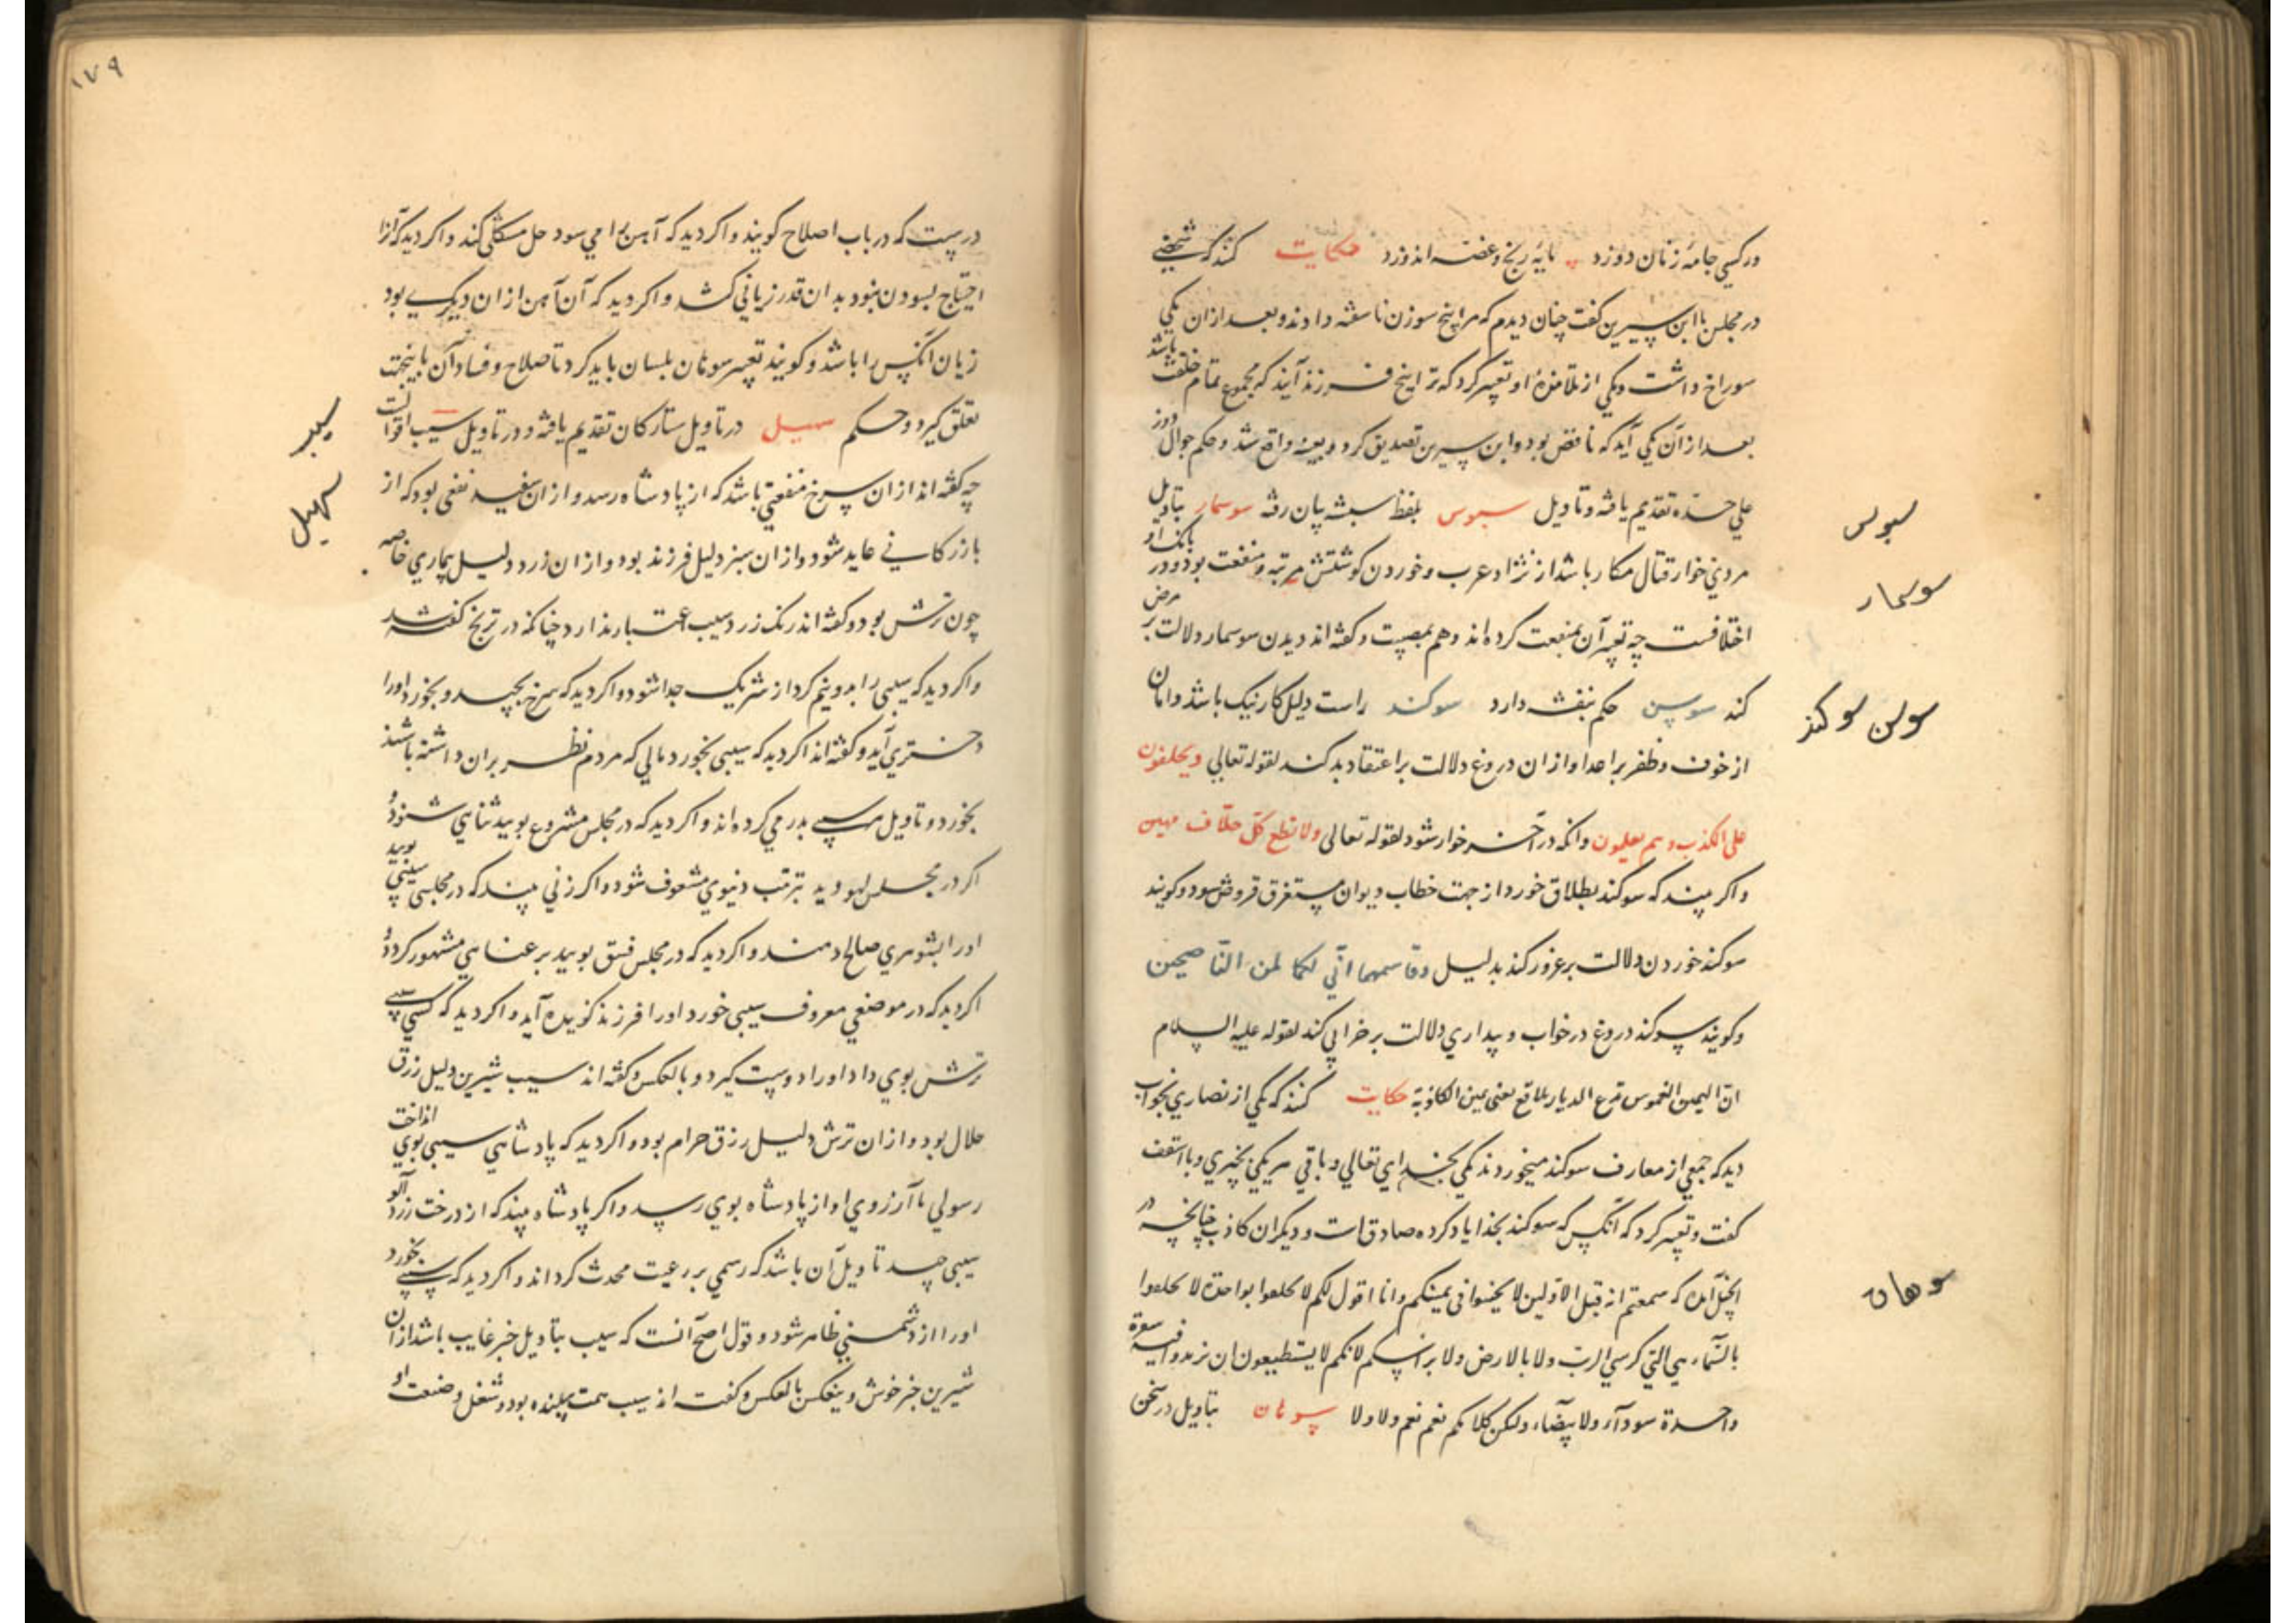 در کسی جامهٔ زنان دوزد پایهٔ رنج و غصه اندوزد حکایت کنند که شخصی
در مجلس با ابن سیرین گفت چنان دیدم که مرا پنج سوزن ناسفته دادند و بعد ازان یکی
سوراخ داشت و یکی از تلامذهٔ او تعبیر کرد که ترا پنج فرزند آیند که مجموع تمام خلقت باشد
بعد ازان یکی آید که ناقص بود و ابن سیرین تصدیق کرد و بعینه واقع شد و حکم جوال دوز
علی حده تقدیم یافته و تاویل سبوس بلفظ سبشه پان رفته سوسمار بتاویل
سبوس
مردی خوار قتال مکار باشد از نژاد عرب و خوردن کوشتش مرتبه و منفعت بود و در بانک او
سوسمار
اختلافست چه تعبیر آن بمنفعت کرده اند و هم بمصیبت و کفته اند دیدن سوسمار دلالت بر مرض
کند سوسن حکم بنفشه دارد سوکند راست دلیل کار نیک باشد و امان
سوسن سوکند
از خوف و ظفر بر اعدا و ازان دروغ دلالت بر اعتقاد بد کند لقوله تعالی ویحلفون
علی الکذب وهم یعلمون و انکه در آخر خوار شود لقوله تعالی ولا تطع کل حلاف مهین
و اکر بیند که سوکند بطلاق خورد از جهت خطاب دیوان مستغرق قروض شود و کویند
سوکند خوردن دلالت بر غرور کند بدلیل وقاسمهما انی لکما لمن الناصحین
و کویند سوکند دروغ در خواب و بیداری دلالت بر خرابی کند لقوله علیه السلام
ان الیمین الغموس تدع الدیار بلاقع یعنی یمین الکاذبة حکایت کنند که یکی از نصاری بخواب
دید که جمعی از معارف سوکند میخوردند یکی بخدای تعالی و باقی هر یکی بچیزی و با اسقف
کفت و تعبیر کرد که آنکس که سوکند بخدا یاد کرده صادق است و دیکران کاذب چنانچه در
انجیل آمده که سمعتم انه قیل الاولین لا یحنثوا فی یمینکم وانا اقول لکم لا تحلفوا بواحدة لا تحلفوا
سوهان
بالسماء هی التی کرسی الرب ولا بالارض ولا براسکم لانکم لا یستطیعون ان تزیدوا فیه شعرة
واحدة سوداء ولا بیضاء ولکن کلامکم نعم نعم ولا ولا سوهان بتاویل در سخن
۱۷۹
درست که در باب اصلاح کویند و اکر دید که آهن را می سود حل مشکلی کند و اکر دید که آنرا
احتیاج بسودن نبود بدان قدر زیانی کشد و اکر دید که آن آهن ازان دیکری بود
زیان آنکس را باشد و کویند تعبیر سوهان بلسان باید کرد تا صلاح و فساد آن باینجهت
تعلق کیرد و حکم سهیل در تاویل ستارکان تقدیم یافته و در تاویل سیب اقوالست
سیب
سهیل
چه کفته اند ازان سرخ منفعتی باشد که از پادشاه رسد و ازان سفید نفعی بود که از
بازرکانی عاید شود و ازان سبز دلیل فرزند بود و ازان زرد دلیل بیماری خاصه
چون ترش بود و کفته اند رنک زرد سیب اعتبار ندارد چنانکه در ترنج کفته شد
و اکر دید که سیبی را بدو نیم کرد از شریک جدا شود و اکر دید که سرخ بچید و بخورد اورا
دختری آید و کفته اند اکر دید که سیبی بخورد مالی که مردم نظر بران داشته باشند
بخورد و تاویل سیب بدرمی کرده اند و اکر دید که در مجلس مشروع بویید ثنایی شنود و
اکر در مجلس لهو دید بترتب دنیوی مشعوف شود و اکر زنی بیند که در مجلسی سیبی بویید
اورا بشوهری صالح دهند و اکر دید که در مجلس فسق بویید بر عناهی مشهور کردد و
اکر دید که در موضعی معروف سیبی خورد اورا فرزند کزیده آید و اکر دید که کسی سیبی
ترش بوی داد اورا دوست کیرد و بالعکس و کفته اند سیب شیرین دلیل رزق
حلال بود و ازان ترش دلیل رزق حرام بود و اکر دید که پادشاهی سیبی بوی انداخت
رسولی با آرزوی او از پادشاه بوی رسد و اکر پادشاه بیند که از درخت زرد آلو
سیبی چید تاویل آن باشد که رسمی بر رعیت محدث کرداند و اکر دید که سیبی بخورد
اورا از دشمنی ظاهر شود و قول اصح آنست که سیب بتاویل خبر غایب باشد ازان
شیرین خبر خوش و ینعکس بالعکس و کفته اند سیب همت بیننده بود و شغل و صنعت او